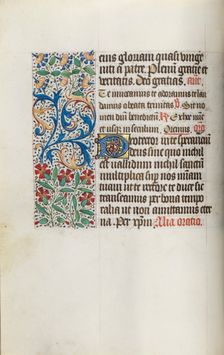 eius gloriam quasi unige
niti a patre. Plenum gracie et
veritatis. Deo gratias. añ.
Te invocamus te adoramus te lau
damus o beata trinitas. Sit no
men dñi benedictũ Ex hoc nunc
et usqʒ in seculum. Oremus.
Protector in te sperancium
deus sine quo nichil
est validum nichil sanctũ
multiplica sup nos miam
tuam ut te rectore et duce sic
transeamus per bona tempo
ralia ut non amittamus eter
na. Per xpm̃ Alia oratio.